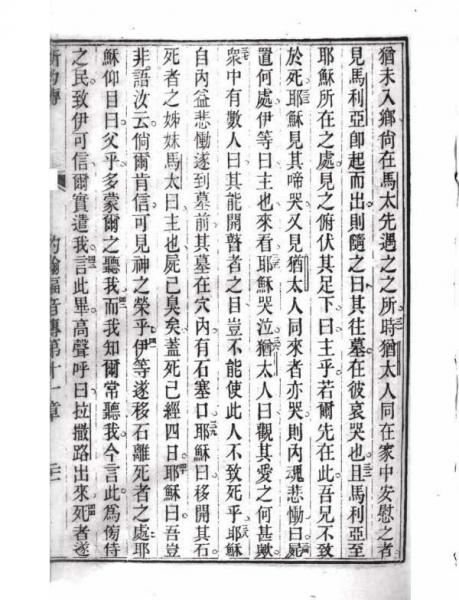 猶未入鄉尙在馬太先遇之之所時猶太人同在家中安慰之者
見馬利亞卽起而出則隨之曰其徃墓在彼哀哭也且馬利亞至
耶穌所在之處見之俯伏其足下曰主乎若爾先在此吾兄不致
於死耶穌見其啼哭又見猶太人同來者亦哭則內魂悲慟曰屍
置何處伊等曰主也來看耶穌哭泣猶太人曰觀其愛之何甚歟
衆中有數人曰其能開瞽者之目豈不能使此人不致死乎耶穌
自內益悲慟遂到墓前其墓在穴內有石塞口耶穌曰移開其石
死者之姊妹馬太曰主也屍已臭矣蓋死已經四日耶穌曰吾豈
非語汝云倘爾肯信可見神之榮乎伊等遂移石離死者之處耶
穌仰目曰父乎多蒙爾之聽我而我知爾常聽我今言此爲傍侍
之民致伊可信爾實遣我言此畢高聲呼曰拉撒路出來死者遂
約翰福音傳第十一章